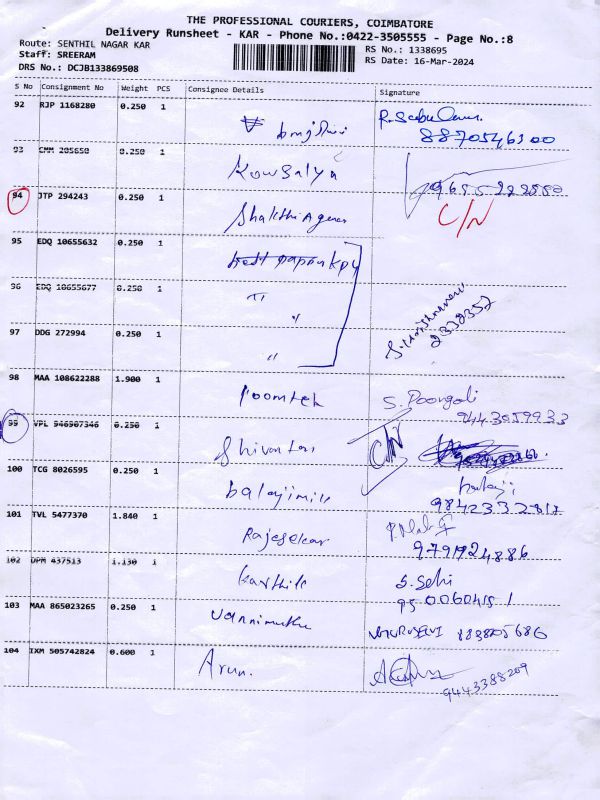 THE PROFESSIONAL COURIERS, COIMBATORE
Delivery Runsheet - KAR - Phone No.:0422-3505555 - Page No.:8
Route: SENTHIL NAGAR KAR
RS No.: 1338695
Staff: SREERAM
RS Date: 16-Mar-2024
DRS No.: DCJB133869508
S No Consignment No Weight PCS Consignee Details Signature
92 RJP 1168280 0.250 1
8870546300
93 CMM 205650 0.250 1 Kowsalya
9655222550
94 JTP 294243 0.250 1 Shakthi Agency
C/N
95 EDQ 10655632 0.250 1
96 EDQ 10655677 0.250 1 "
2338357
97 DDG 272994 0.250 1 "
98 MAA 108622288 1.900 1 Poomtek S. Poongodi
9443059933
99 VPL 946907346 0.250 1 C/N
100 TCG 8026595 0.250 1 balajimills balaji
101 TVL 5477370 1.840 1 Rajesekar
9791924886
102 DPM 437513 1.130 1 karthik
103 MAA 865023265 0.250 1 Vannimuthu
104 IXM 505742824 0.600 1 Arun.
9443388209